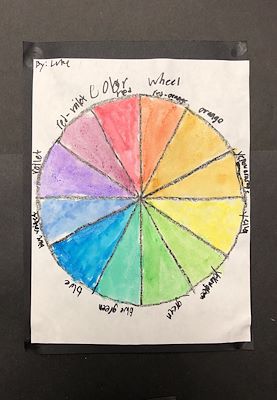 By: Luke
Color Wheel
red
red-orange
orange
yellow orange
yellow green
green
blue green
blue
violet
red-violet